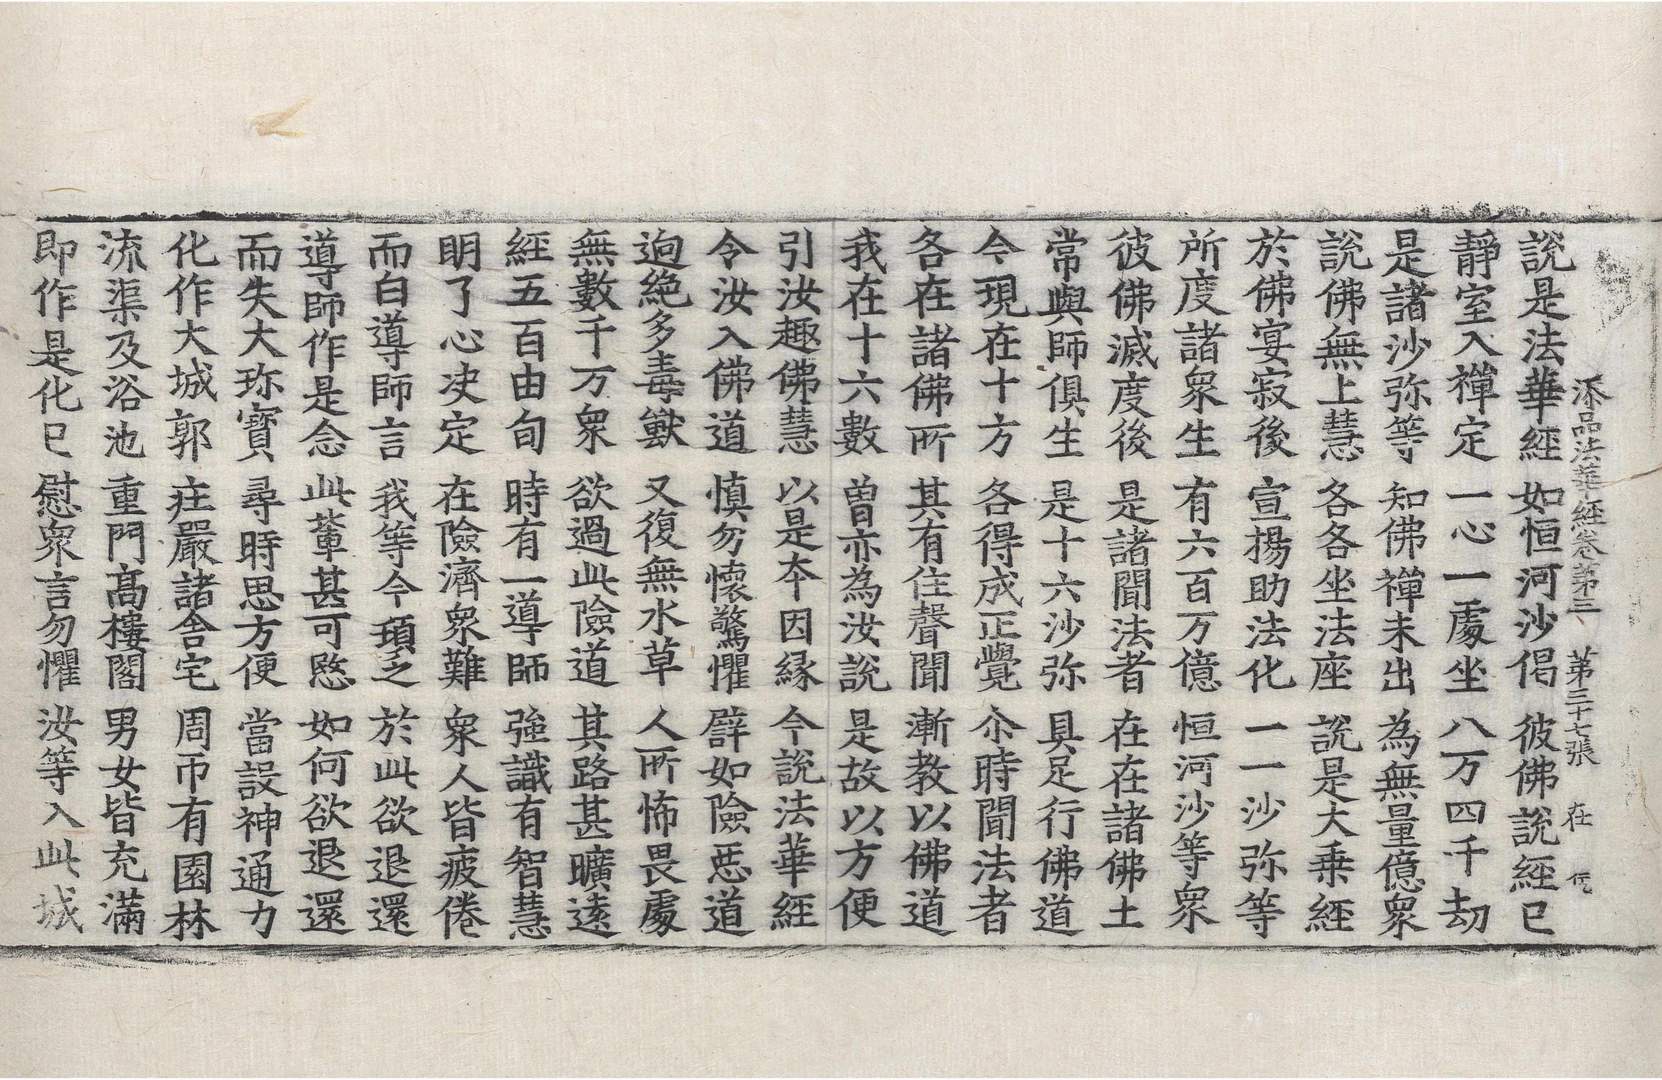 添品法華經卷第三 第三十七張 在
說是法華經 如恒河沙偈 彼佛說經已
靜室入禪定 一心一處坐 八万四千劫
是諸沙弥等 知佛禪未出 為無量億衆
說佛無上慧 各各坐法座 說是大乗經
於佛宴寂後 宣揚助法化 一一沙弥等
所度諸衆生 有六百万億 恒河沙等衆
彼佛滅度後 是諸聞法者 在在諸佛土
常與師俱生 是十六沙弥 具足行佛道
今現在十方 各得成正覺 尒時聞法者
各在諸佛所 其有住聲聞 漸教以佛道
我在十六數 曾亦為汝說 是故以方便
引汝趣佛慧 以是夲因緣 今說法華經
令汝入佛道 慎勿懷驚懼 譬如險惡道
逈絶多毒獸 又復無水草 人所怖畏處
無數千万衆 欲過此險道 其路甚曠遠
經五百由旬 時有一導師 強識有智慧
明了心決定 在險濟衆難 衆人皆疲倦
而白導師言 我等今頓乏 於此欲退還
導師作是念 此輩甚可愍 如何欲退還
而失大珎寳 尋時思方便 當設神通力
化作大城郭 庄嚴諸舍宅 周帀有園林
流渠及浴池 重門高樓閣 男女皆充滿
即作是化已 慰衆言勿懼 汝等入此城